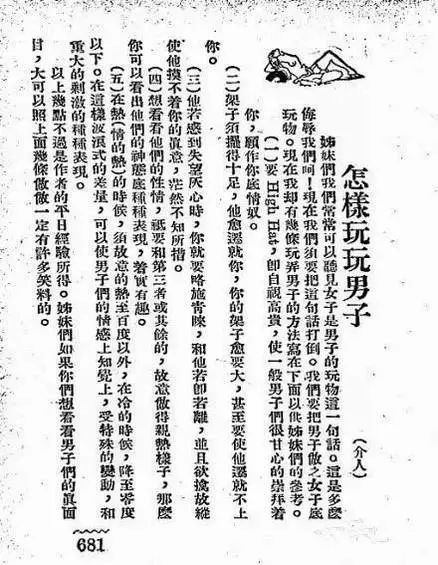 怎樣玩玩男子
（介人）
姊妹們我們常常可以聽見女子是男子的玩物這一句話。這是多麼
侮辱我們呵！現在我們須要把這句話打倒。我們要把男子做之女子底
玩物。現在我却有幾條玩弄男子的方法寫在下面以供姊妹們的參考。
（一）要 High Hat，卽自視高貴，使一般男子們很甘心的崇拜着
你，願作你底情奴。
（二）架子須擺得十足，他愈遷就你，你的架子愈要大，甚至要使他遷就不上
你。
（三）他若感到失望灰心時，你就要略施靑睞，和他若卽若離，並且欲擒故縱
使他摸不着你的眞意，茫然不知所措。
（四）想看看他們的性情，祇要和第三者或其餘的，故意做得親熱樣子，那麼
你可以看出他們的神態底種種表現，着實有趣。
（五）在熱（情的熱）的時候，須故意的熱至百度以外，在冷的時候，降至零度
以下。在這樣波浪式的差量，可以使男子們的情感上知覺上，受特殊的變動，和
重大的刺激的種種表現。
以上幾點不過是作者的平日經驗所得。姊妹們如果你們想看看男子們的眞面
目，大可以照上面幾條做做一定有許多笑料的。
681